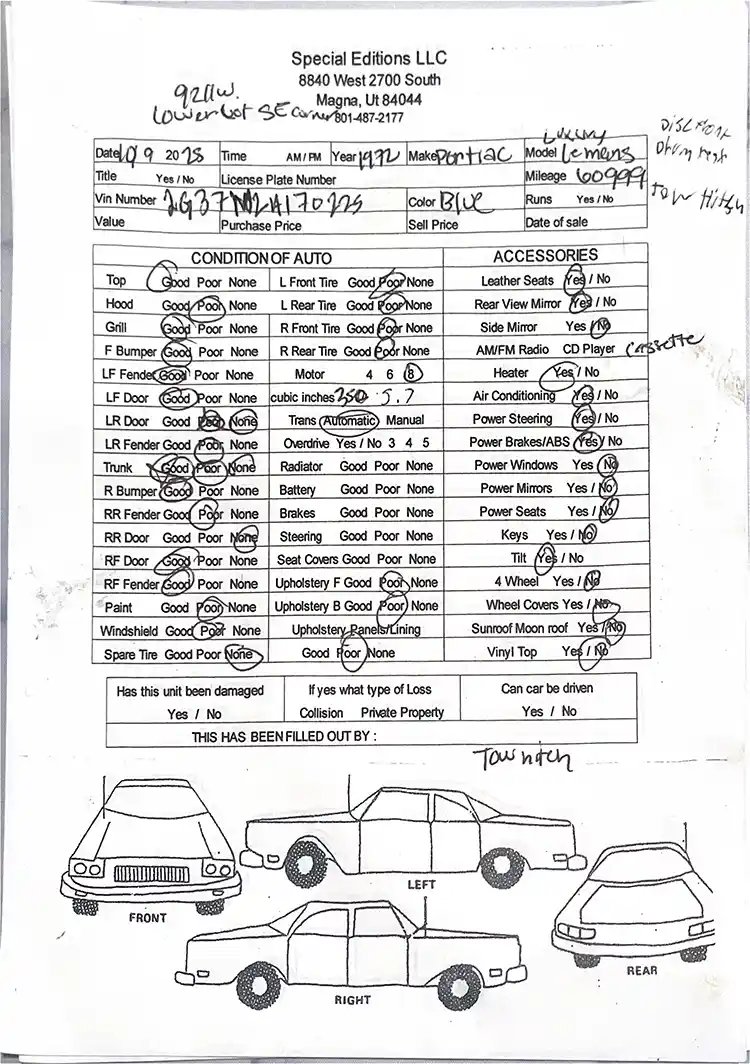 Special Editions LLC
8840 West 2700 South
Magna, Ut 84044
801-487-2177
Lower Lot SE corner
Disc front
Drum rear
Tow Hitch
Luxury
Date 10 9 2025 Time AM / PM Year 1972 Make Pontiac Model Lemans
Title Yes / No License Plate Number Mileage 60999
Vin Number 2G37M2A170225 Color Blue Runs Yes / No
Value Purchase Price Sell Price Date of sale
CONDITION OF AUTO ACCESSORIES
Top Good Poor None L Front Tire Good Poor None Leather Seats Yes / No
Hood Good Poor None L Rear Tire Good Poor None Rear View Mirror Yes / No
Grill Good Poor None R Front Tire Good Poor None Side Mirror Yes / No
F Bumper Good Poor None R Rear Tire Good Poor None AM/FM Radio CD Player Cassette
LF Fender Good Poor None Motor 4 6 8 Heater Yes / No
LF Door Good Poor None cubic inches 350 5.7 Air Conditioning Yes / No
LR Door Good Poor None Trans Automatic Manual Power Steering Yes / No
LR Fender Good Poor None Overdrive Yes / No 3 4 5 Power Brakes/ABS Yes / No
Trunk Good Poor None Radiator Good Poor None Power Windows Yes / No
R Bumper Good Poor None Battery Good Poor None Power Mirrors Yes / No
RR Fender Good Poor None Brakes Good Poor None Power Seats Yes / No
RR Door Good Poor None Steering Good Poor None Keys Yes / No
RF Door Good Poor None Seat Covers Good Poor None Tilt Yes / No
RF Fender Good Poor None Upholstery F Good Poor None 4 Wheel Yes / No
Paint Good Poor None Upholstery B Good Poor None Wheel Covers Yes / No
Windshield Good Poor None Upholstery Panels/Lining Sunroof Moon roof Yes / No
Spare Tire Good Poor None Good Poor None Vinyl Top Yes / No
Has this unit been damaged If yes what type of Loss Can car be driven
Yes / No Collision Private Property Yes / No
THIS HAS BEEN FILLED OUT BY :
Tow hitch
LEFT
FRONT
REAR
RIGHT